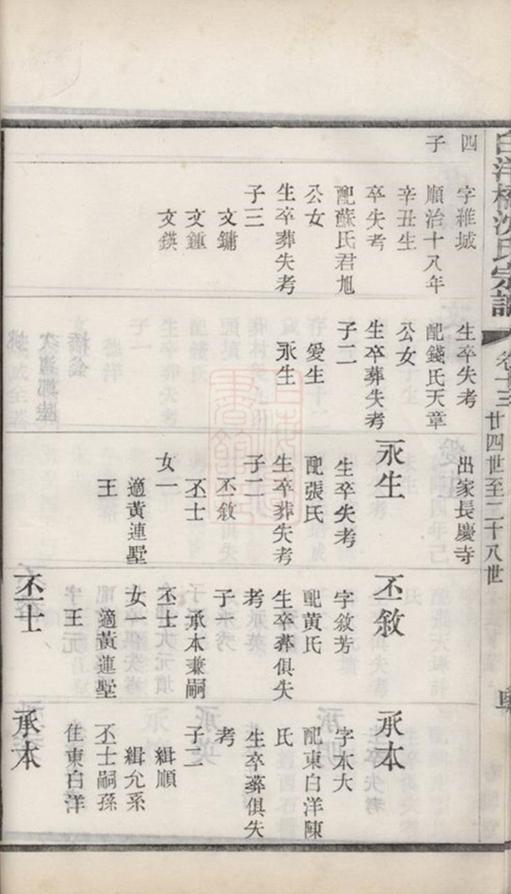 白洋橋沈氏宗譜
卷十三
廿四世至二十八世
四
子
字維城
順治十八年
辛丑生
卒失考
配蘇氏君旭
公女
生卒葬失考
子三
文鏞
文鍾
文鍈
生卒失考
配錢氏天章
公女
生卒葬失考
子二
愛生
永生
出家長慶寺
永生
生卒失考
配張氏
生卒葬失考
子二
丕敘
丕士
女一
適黃連墅
王
丕敘
字敘芳
配黃氏
生卒葬俱失
考
子一
承本兼嗣
丕士
女一
適黃連墅
王
丕士
承本
字本大
配東白洋陳
氏
生卒葬俱失
考
子二
緝順
緝允系
丕士嗣孫
住東白洋
承本